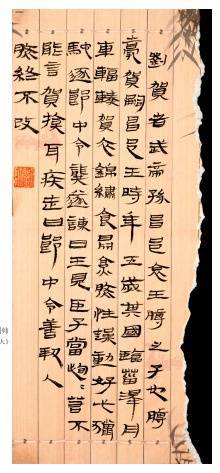 劉賀者武帝孫昌邑哀王髆之子也髆
薨賀嗣昌邑王時年五歲其國臨菑澤舟
車輻輳賀衣錦繡食鼎食然性躁動好弋獵
馳逐郎中令龔遂諫曰王見臣子當恂恂苟不
能言賀掩耳疾走曰郎中令善愧人
然終不改
人）